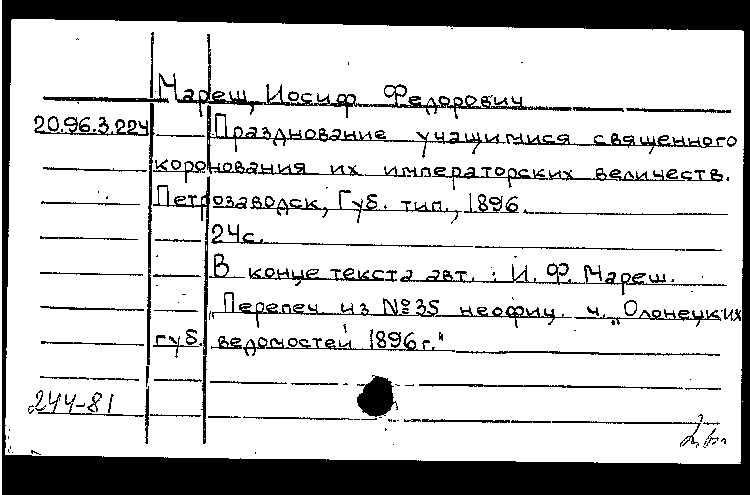 Мареш, Иосиф Федорович
20.96.3.224 Празднование учащимися священного
коронования их императорских величеств.
Петрозаводск, Губ. тип., 1896.
24с.
В конце текста авт. : И. Ф. Мареш.
„Перепеч из №35 неофиц. ч. „Олонецких
губ. ведомостей 1896г."
244-81